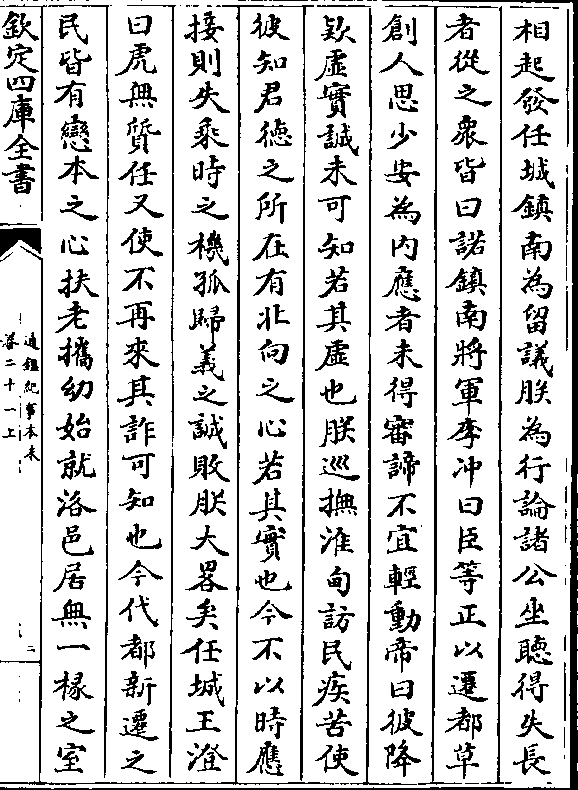 相起發任城鎮南為留議朕為行論諸公坐聽得失長
者從之衆皆曰諾鎮南將軍李冲曰臣等正以遷都草
創人思少安為内應者未得審諦不宜輕動帝曰彼降
欵虚實誠未可知若其虚也朕巡撫淮甸訪民疾苦使
彼知君徳之所在有北向之心若其實也今不以時應
接則失乘時之機孤歸義之誠敗朕大畧矣任城王澄
曰虎無質任又使不再來其詐可知也今代都新遷之
民皆有戀本之心扶老攜幼始就洛邑居無一椽之室
欽定四庫全書
通鑑紀事本末
卷二十一上
二